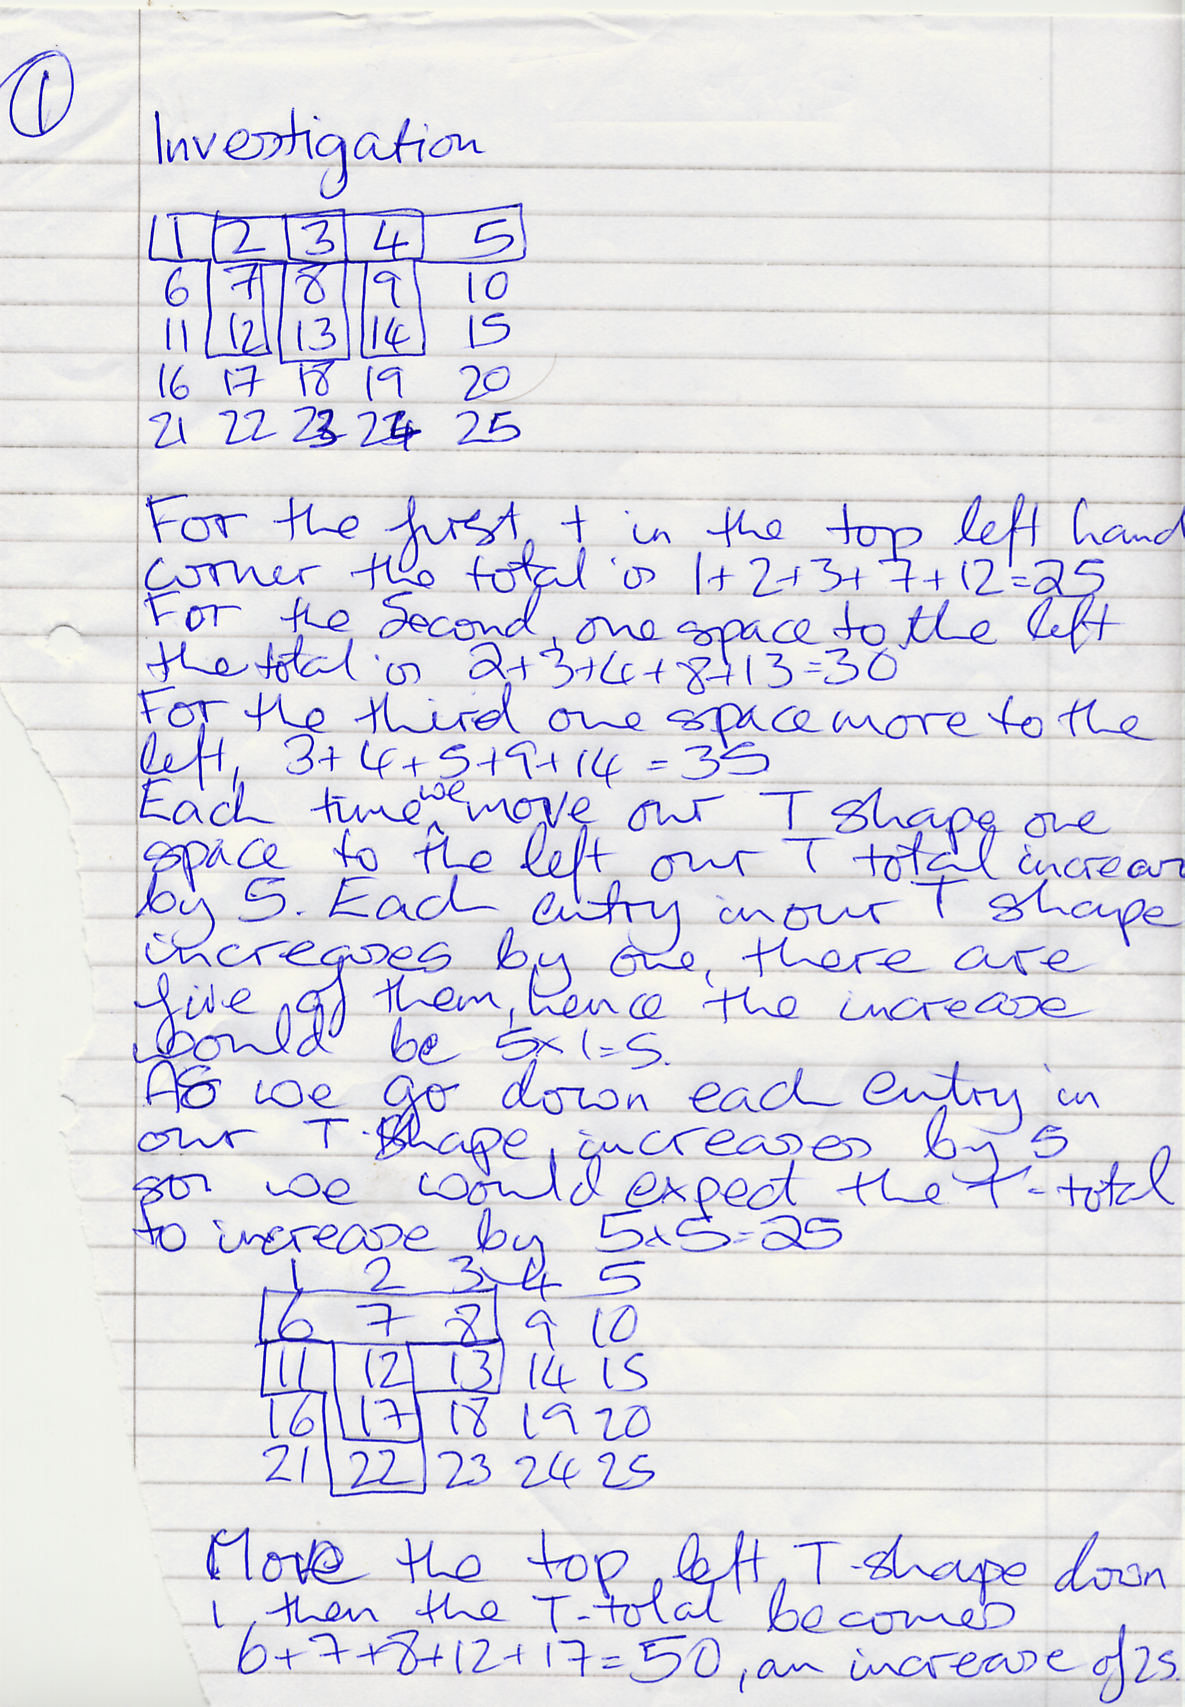 1
Investigation
1 2 3 4 5
6 7 8 9 10
11 12 13 14 15
16 17 18 19 20
21 22 23 24 25
For the first t in the top left hand
corner the total is 1+2+3+7+12=25
For the Second, one space to the left
the total is 2+3+4+8+13=30
For the third one space more to the
left, 3+4+5+9+14=35
Each time we move our T shape one
space to the left our T total increas
by 5. Each entry in our T shape
increases by one, there are
five of them, hence the increase
would be 5x1=5.
As we go down each entry in
our T-Shape increases by 5
so we would expect the T-total
to increase by 5x5=25
1 2 3 4 5
6 7 8 9 10
11 12 13 14 15
16 17 18 19 20
21 22 23 24 25
Move the top left T-shape down
1, then the T-total becomes
6+7+8+12+17=50, an increase of 25.